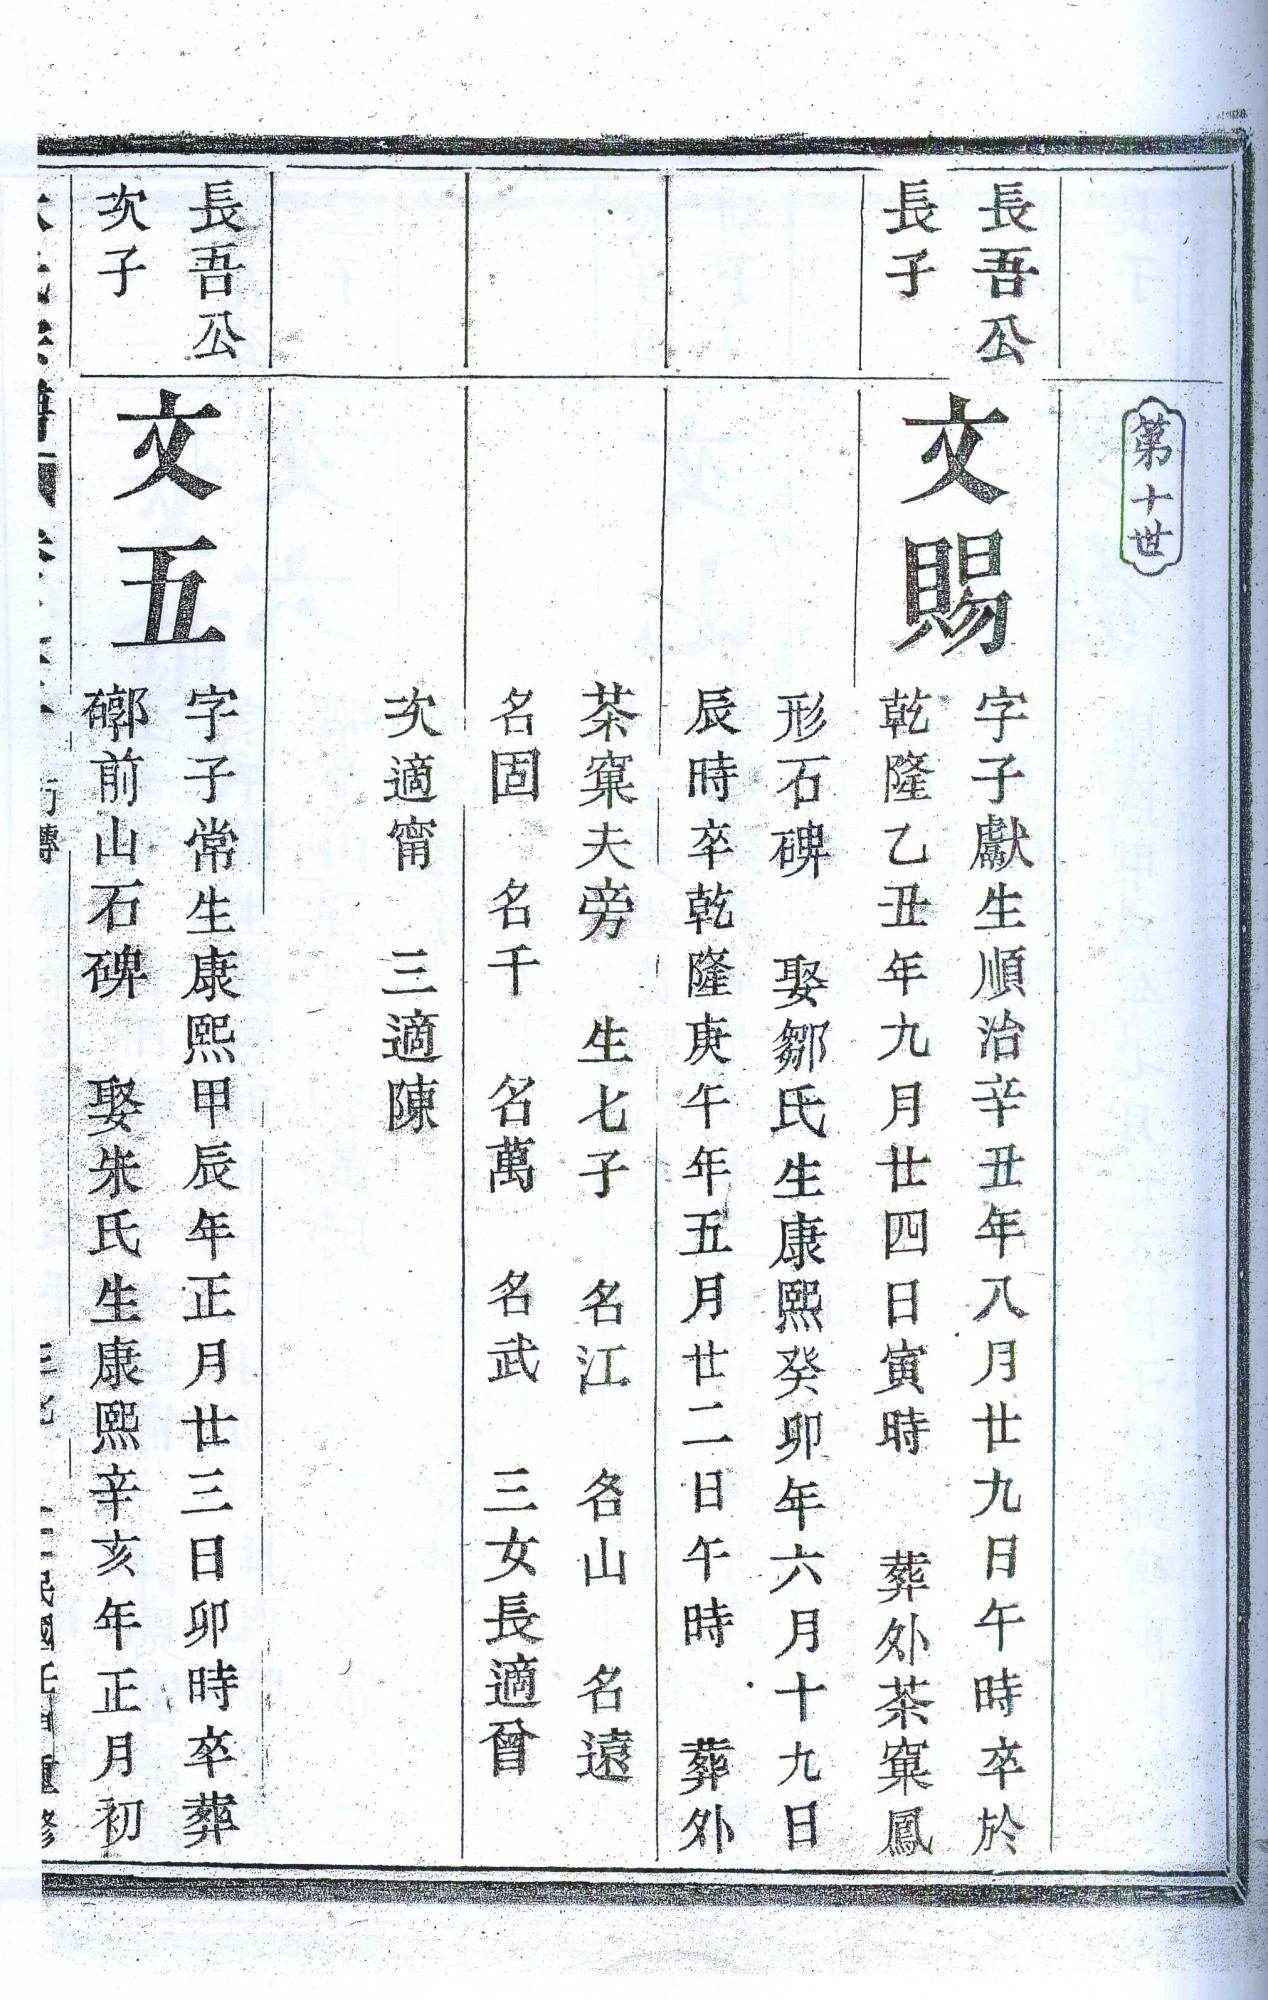 第十世
長吾公
長子
文賜
字子獻生順治辛丑年八月廿九日午時卒於
乾隆乙丑年九月廿四日寅時 葬外茶窠鳳
形石碑 娶鄒氏生康熙癸卯年六月十九日
辰時卒乾隆庚午年五月廿二日午時 葬外
茶窠夫旁 生七子 名江 名山 名遠
名固 名千 名萬 名武 三女長適曾
次適甯 三適陳
長吾公
次子
文五
字子常生康熙甲辰年正月廿三日卯時卒葬
𥕏前山石碑 娶朱氏生康熙辛亥年正月初
民國壬申重修